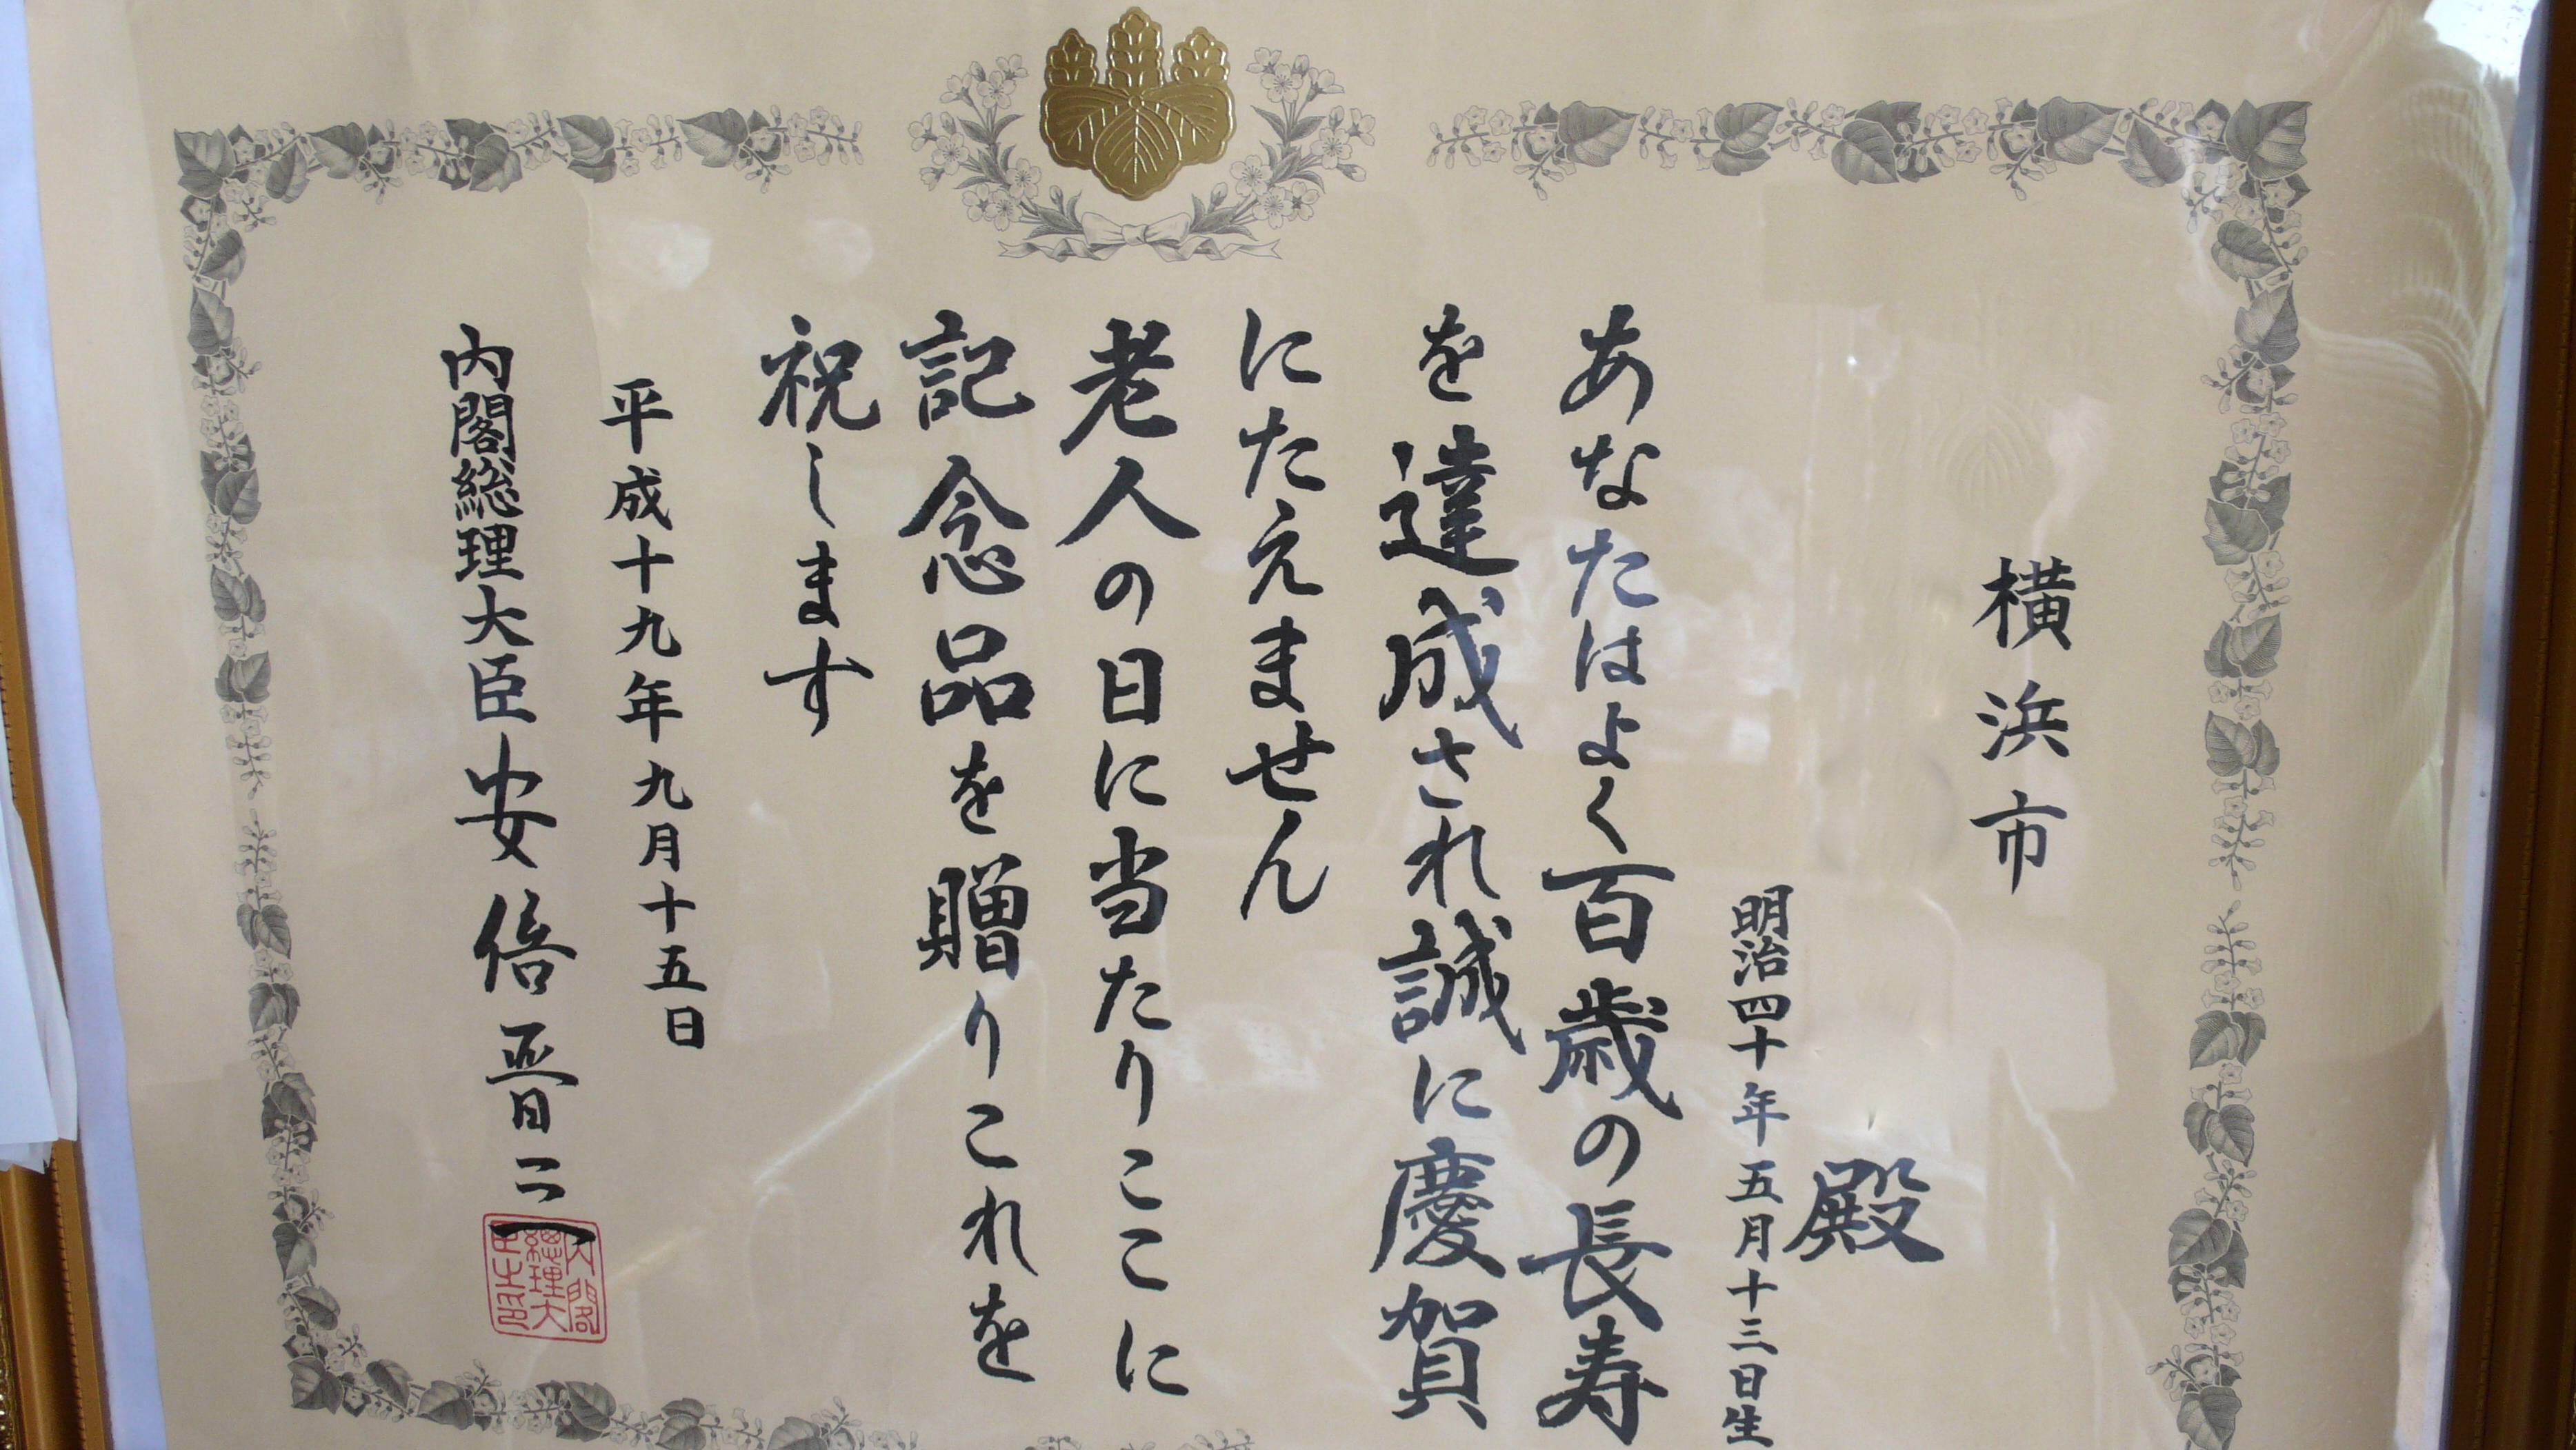 横浜市
殿
明治四十年五月十三日生
あなたはよく百歳の長寿
を達成され誠に慶賀
にたえません
老人の日に当たりここに
記念品を贈りこれを
祝します
平成十九年九月十五日
内閣総理大臣安倍晋三
内閣
總理大
臣之印